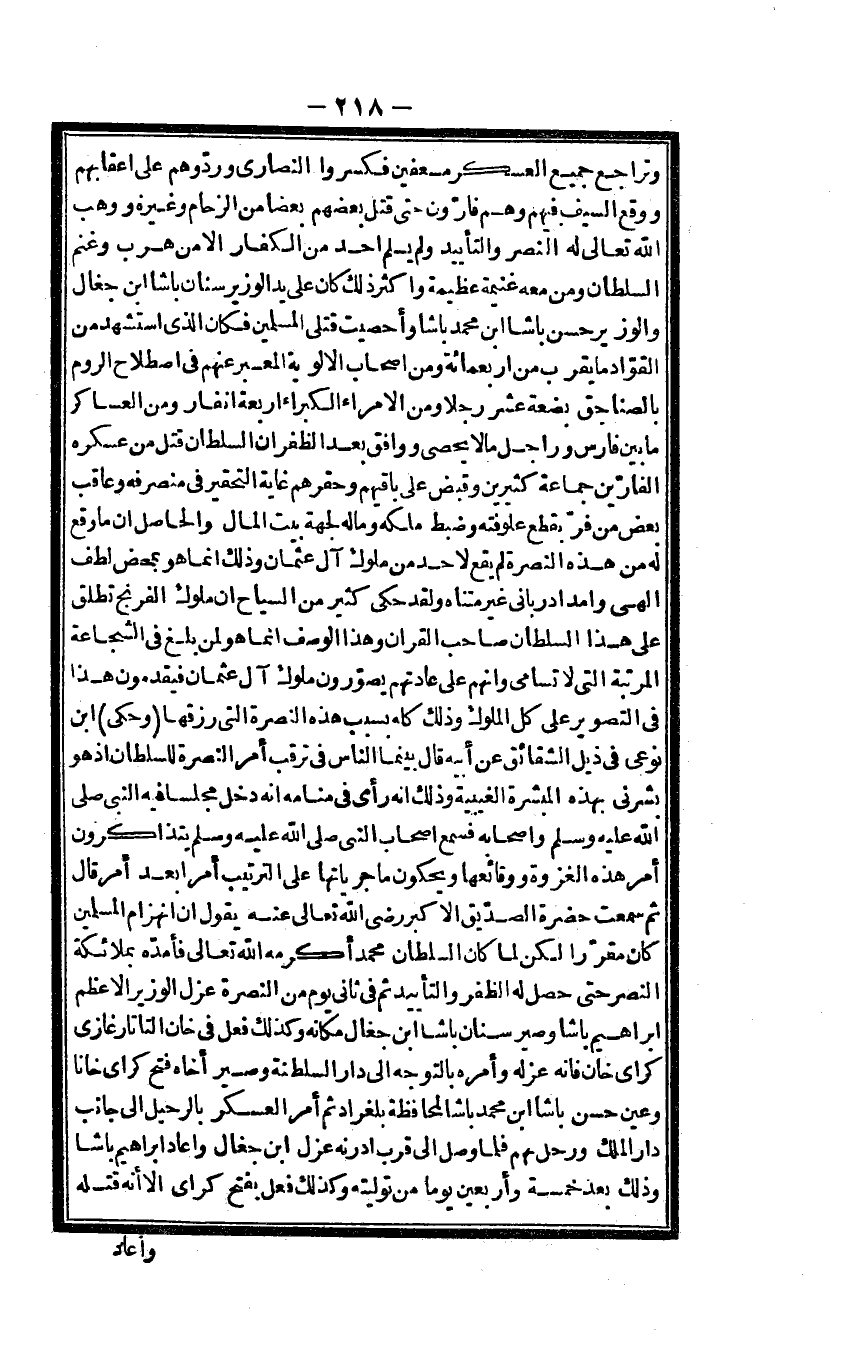 — ٢١٨ —
وتراجع جميع العسكر مسعفين فكسروا النصارى وردّوهم على اعقابهم
ووقع السيف فيهم وهم فارّون حتى قتل بعضهم بعضا من الزحام وغيره ووهب
الله تعالى له النصر والتأييد ولم يسلم احد من الكفار الا من هرب وغنم
السلطان ومن معه غنيمة عظيمة واكثر ذلك كان على يد الوزير سنان باشا ابن جغال
والوزير حسن باشا ابن محمد باشا وأحصيت قتلى المسلمين فكان الذى استشهد من
القوّاد ما يقرب من اربعمائة ومن اصحاب الالوية المعبر عنهم فى اصطلاح الروم
بالصناجق بضعة عشر رجلا ومن الامراء الكبراء اربعة انفار ومن العساكر
ما بين فارس وراجل مالا يحصى ووافق بعد الظفر ان السلطان قتل من عسكره
الفارّين جماعة كثيرين وقبض على باقيهم وحقرهم غاية التحقير فى منصرفه وعاقب
بعض من فرّ بقطع علوفته وضبط ملكه وماله لجهة بيت المال والحاصل ان ما وقع
له من هذه النصرة لم يقع لاحد من ملوك آل عثمان وذلك انما هو بمحض لطف
الهى وامداد ربانى غير متناه ولقد حكى كثير من السياح ان ملوك الفرنج تطلق
على هذا السلطان صاحب القران وهذا الوصف انما هو لمن بلغ فى الشجاعة
المرتبة التى لا تسامى وانهم على عادتهم يصوّرون ملوك آل عثمان فيقدمون هذا
فى التصوير على كل الملوك وذلك كله بسبب هذه النصرة التى رزقها (وحكى) ابن
نوعى فى ذيل الشقائق عن أبيه قال بينما الناس فى ترقب أمر النصرة للسلطان اذ هو
بشرنى بهذه المبشرة الغيبية وذلك انه رأى فى منامه انه دخل مجلسا فيه النبى صلى
الله عليه وسلم واصحابه فسمع اصحاب النبى صلى الله عليه وسلم يتذاكرون
أمر هذه الغزوة ووقائعها ويحكون ماجرياتها على الترتيب أمرا بعد أمر قال
ثم سمعت حضرة الصدّيق الاكبر رضى الله تعالى عنه يقول ان انهزام المسلمين
كان مقرّرا لكن لما كان السلطان محمد أكرمه الله تعالى فأمدّه بملائكة
النصر حتى حصل له الظفر والتأييد ثم فى ثانى يوم من النصرة عزل الوزير الاعظم
ابراهيم باشا وصير سنان باشا ابن جغال مكانه وكذلك فعل فى خان التاتار غازى
كراى خان فانه عزله وأمره بالتوجه الى دار السلطنة وصير أخاه فتح كراى خانا
وعين حسن باشا ابن محمد باشا لمحافظة بلغراد ثم أمر العسكر بالرحيل الى جانب
دار الملك ورحل بهم فلما وصل الى قرب ادرنه عزل ابن جغال واعاد ابراهيم باشا
وذلك بعد خمسة وأربعين يوما من توليته وكذلك فعل بفتح كراى الا أنه قتله
وأعاد